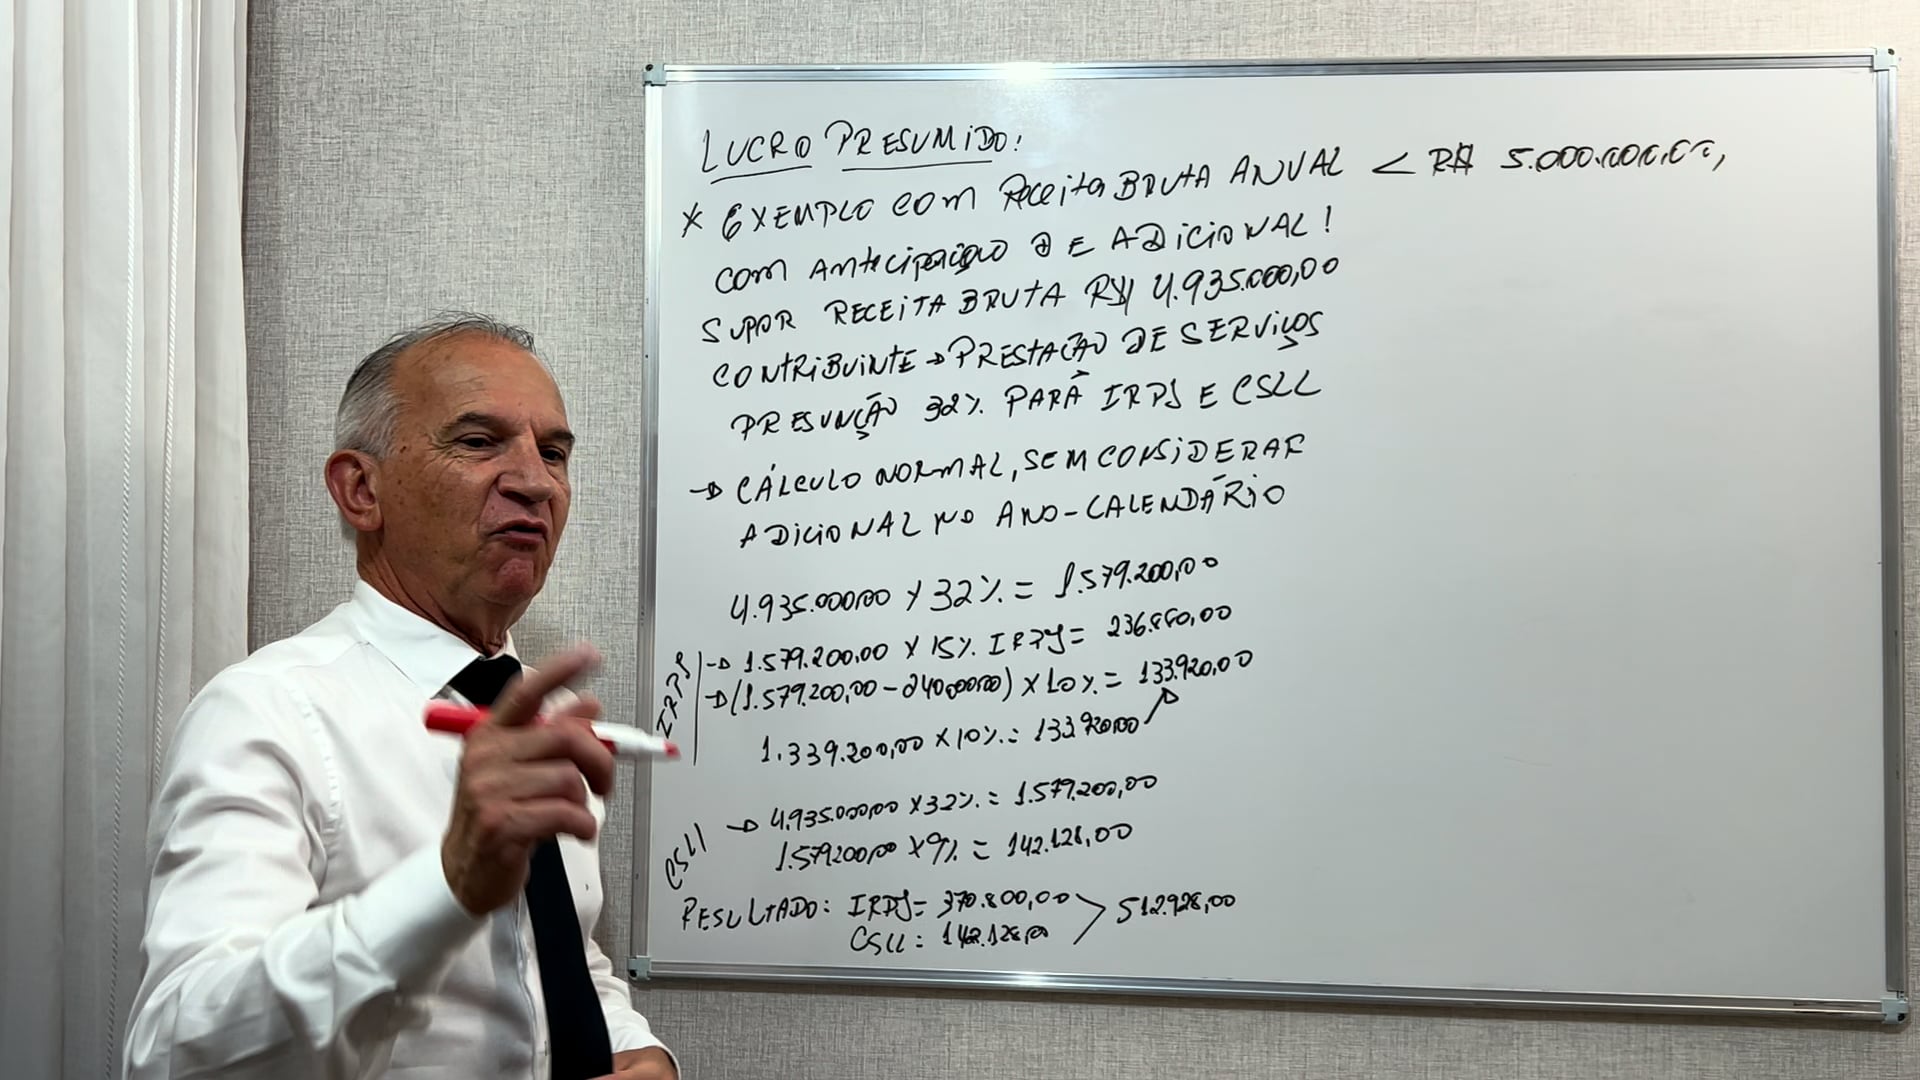 LUCRO PRESUMIDO:
* EXEMPLO COM Receita BRUTA ANUAL < R$ 5.000.000,00,
COM ANTECIPAÇÃO E ADICIONAL!
SUPOR RECEITA BRUTA R$ 4.935.000,00
CONTRIBUINTE → PRESTAÇÃO DE SERVIÇOS
PRESUNÇÃO 32% PARA IRPJ E CSLL
→ CÁLCULO NORMAL, SEM CONSIDERAR
ADICIONAL NO ANO-CALENDÁRIO
4.935.000,00 X 32% = 1.579.200,00
IRPJ
→ 1.579.200,00 X 15% IRPJ = 236.880,00
→ (1.579.200,00 - 240.000,00) X 10% = 133.920,00
1.339.200,00 X 10% = 133.920,00
CSLL
→ 4.935.000,00 X 32% = 1.579.200,00
1.579.200,00 X 9% = 142.128,00
RESULTADO: IRPJ = 370.800,00 > 512.928,00
CSLL: 142.128,00